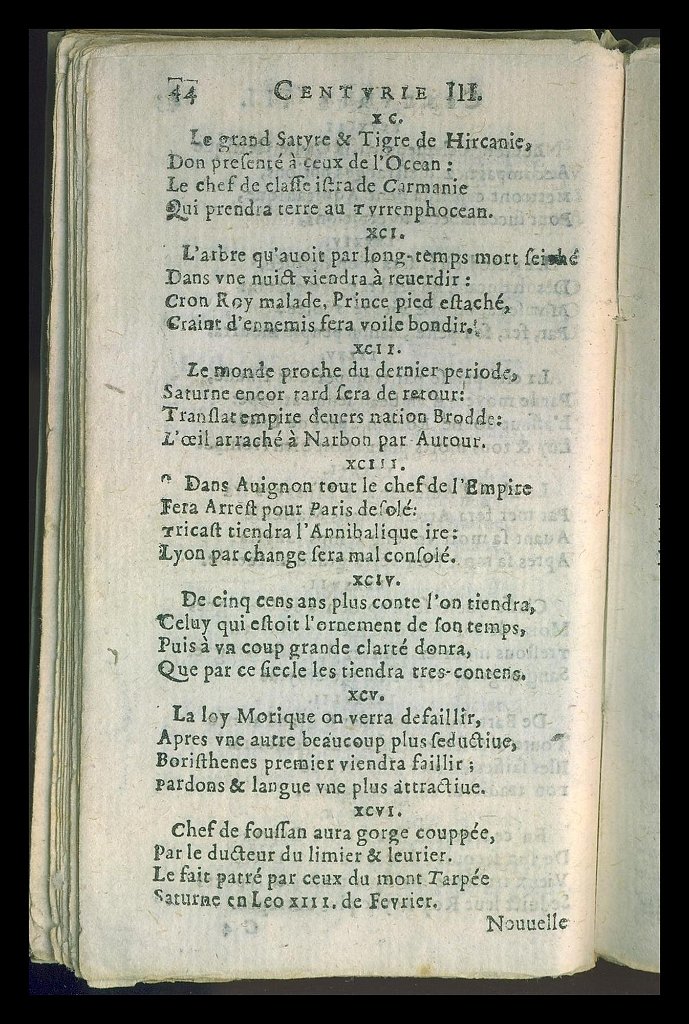 44 CENTVRIE III.
XC.
Le grand Satyre & Tigre de Hircanie,
Don presenté à ceux de l'Ocean :
Le chef de classe istra de Carmanie
Qui prendra terre au Tyrrenphocean.
XCI.
L'arbre qu'auoit par long-temps mort seiché
Dans vne nuict viendra à reuerdir :
Cron Roy malade, Prince pied estaché,
Craint d'ennemis fera voile bondir.
XCII.
Le monde proche du dernier periode,
Saturne encor tard sera de retour:
Translat empire deuers nation Brodde:
L'œil arraché à Narbon par Autour.
XCIII.
Dans Auignon tout le chef de l'Empire
Fera Arrest pour Paris desolé:
Tricast tiendra l'Annibalique ire:
Lyon par change sera mal consolé.
XCIV.
De cinq cens ans plus conte l'on tiendra,
Celuy qui estoit l'ornement de son temps,
Puis à vn coup grande clarté donra,
Que par ce siecle les tiendra tres-contens.
XCV.
La loy Morique on verra defaillir,
Apres vne autre beaucoup plus seductiue,
Boristhenes premier viendra faillir ;
Pardons & langue vne plus attractiue.
XCVI.
Chef de foussan aura gorge couppée,
Par le ducteur du limier & leurier.
Le fait patré par ceux du mont Tarpée
Saturne en Leo XIII. de Fevrier.
Nouuelle